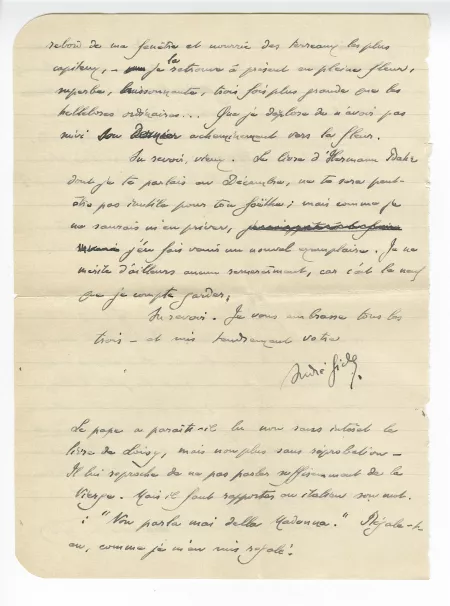 rebord de ma fenêtre et nourrie des terreaux les plus
capiteux, – je la retrouve à présent en pleine fleur,
superbe, buissonnante, trois fois plus grande que les
hellébores ordinaires... Que je déplore de n'avoir pas
suivi son dernier acheminement vers la fleur.
Au revoir, vieux. Le livre d'Hermann Bahr
dont je te parlais en Décembre, ne te sera peut-
être pas inutile pour ton Goethe ; mais comme je
ne saurais m'en priver,
j'en fais venir un nouvel exemplaire. Je ne
mérite d'ailleurs aucun remerciement, car c'est le neuf
que je compte garder.
Au revoir. Je vous embrasse tous les
trois – et suis tendrement votre
André Gide.
Le pape a paraît-il lu non sans intérêt le
livre de Loisy, mais non plus sans réprobation –
Il lui reproche de ne pas parler suffisamment de la
Vierge. Mais il faut rapporter en italien son mot.
: "Non parla mai della Madonna." Régale-t'
en, comme je m'en suis régalé !